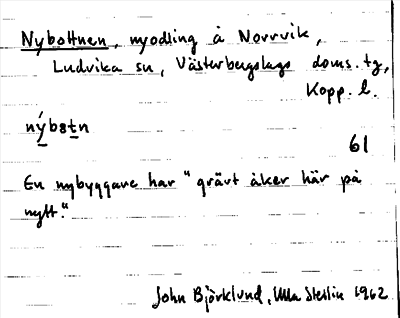 Nybottnen, nyodling å Norrvik,
Ludvika sn, Västerbergslags doms. tg,
Kopp. l.
nýbɷtn
61
En nybyggare har "grävt åker här på
nytt."
John Björklund, Ulla Stellin 1962